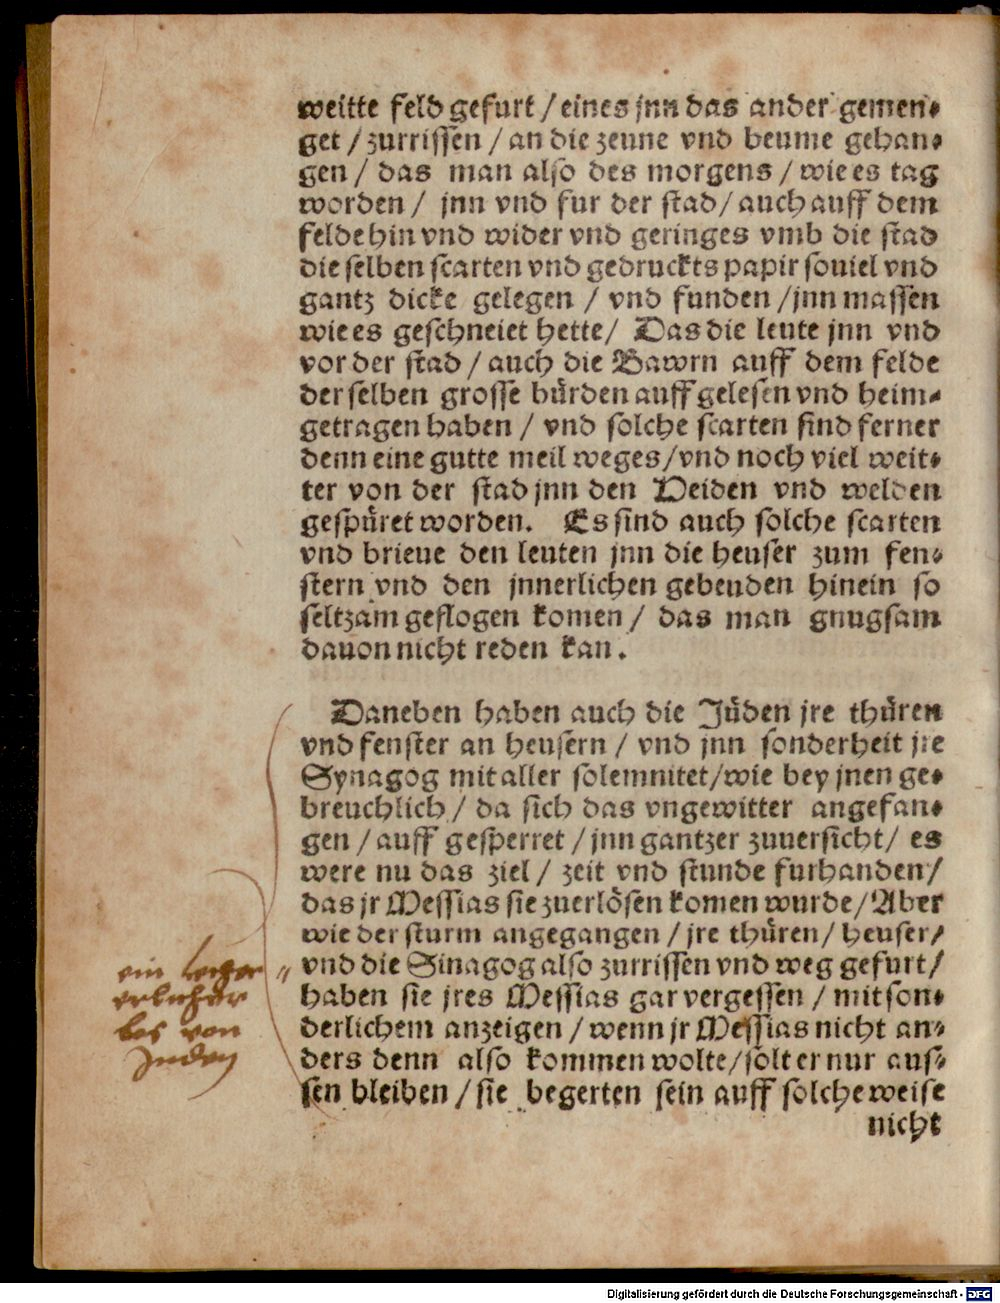 weitte feld gefurt / eines jnn das ander gemen⸗
get / zurrissen / an die zeune vnd beume gehan⸗
gen / das man also des morgens / wie es tag
worden / jnn vnd fur der stad / auch auff dem
felde hin vnd wider vnd geringes vmb die stad
die selben scarten vnd gedruckts papir souiel vnd
gantz dicke gelegen / vnd funden / jnn massen
wie es geschneiet hette / Das die leute jnn vnd
vor der stad / auch die Bawrn auff dem felde
der selben grosse bürden auff gelesen vnd heim⸗
getragen haben / vnd solche scarten sind ferner
denn eine gutte meil weges / vnd noch viel weit⸗
ter von der stad jnn den Heiden vnd welden
gespüret worden. Es sind auch solche scarten
vnd brieue den leuten jnn die heuser zum fen⸗
stern vnd den jnnerlichen gebeuden hinein so
seltzam geflogen komen / das man gnugsam
dauon nicht reden kan.
Daneben haben auch die Jüden jre thüren
vnd fenster an heusern / vnd jnn sonderheit jre
Synagog mit aller solemnitet / wie bey jnen ge⸗
breuchlich / da sich das vngewitter angefan⸗
gen / auff gesperret / jnn gantzer zuuersicht / es
were nu das ziel / zeit vnd stunde furhanden /
das jr Messias sie zuerlösen komen wurde / Aber
wie der sturm angegangen / jre thüren / heuser /
vnd die Sinagog also zurrissen vnd weg gefurt /
haben sie jres Messias gar vergessen / mit son⸗
derlichem anzeigen / wenn jr Messias nicht an⸗
ders denn also kommen wolte / solt er nur aus⸗
sen bleiben / sie begerten sein auff solche weise
nicht
ein
von
Juden
Digitalisierung gefördert durch die Deutsche Forschungsgemeinschaft - DFG